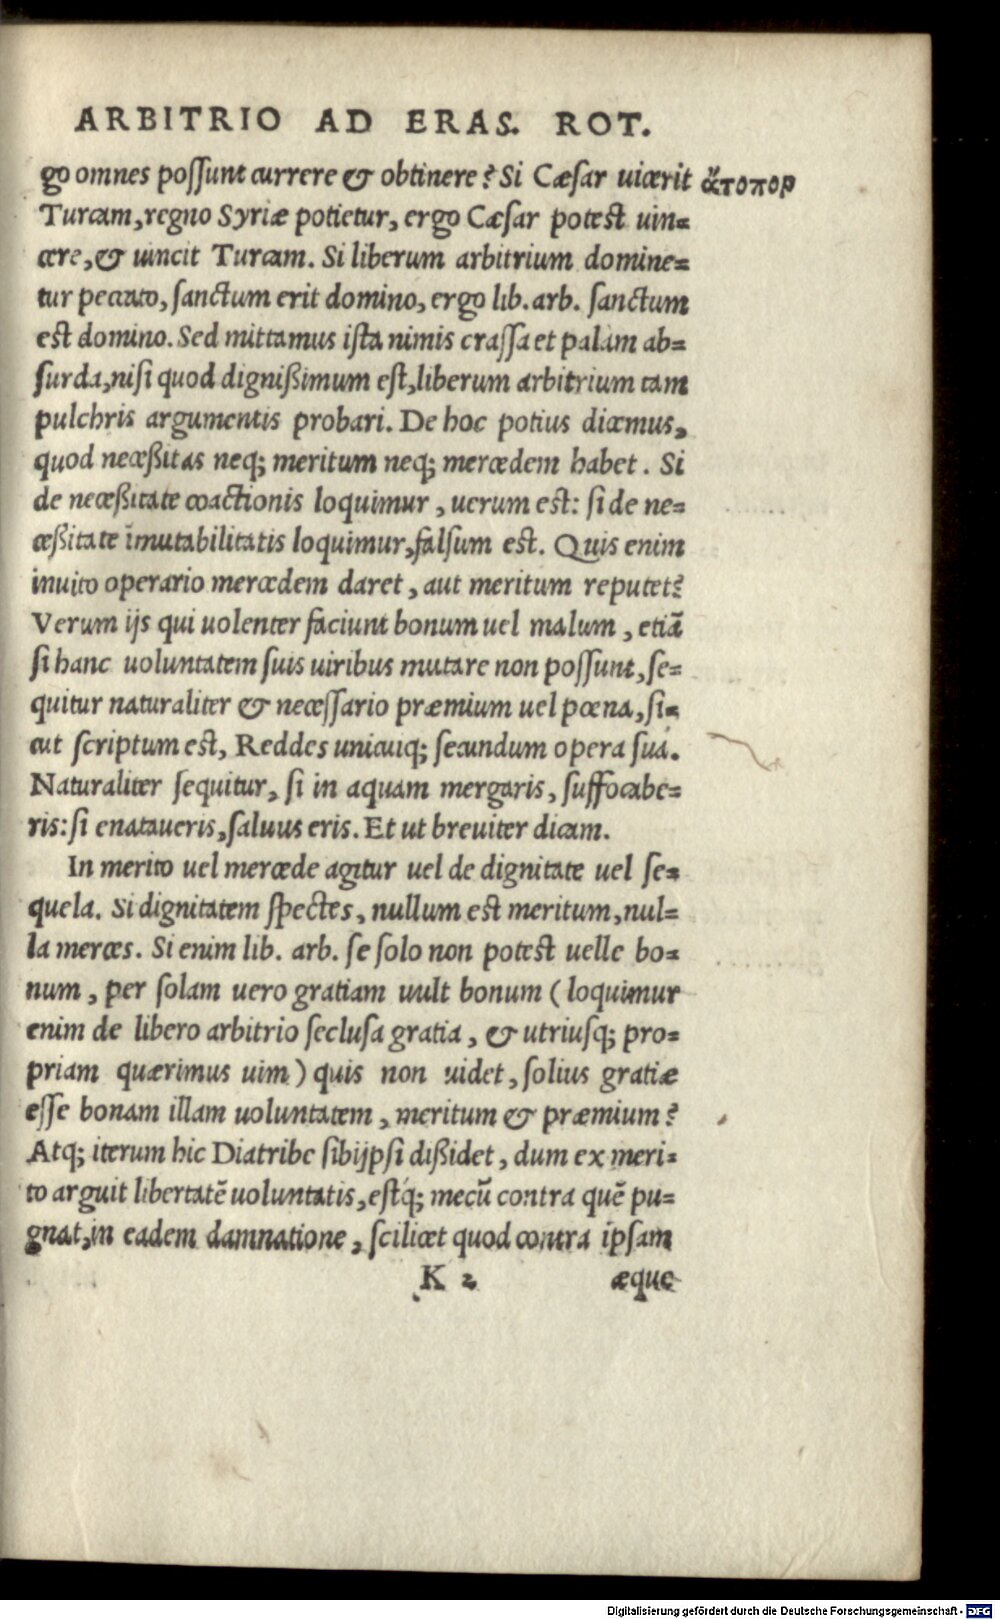 ARBITRIO AD ERAS. ROT.
go omnes possunt currere & obtinere? Si Cæsar uicerit
ἄτοπον
Turcam, regno Syriæ potietur, ergo Cæsar potest uin=
cere, & uincit Turcam. Si liberum arbitrium domine=
tur peccato, sanctum erit domino, ergo lib. arb. sanctum
est domino. Sed mittamus ista nimis crassa et palam ab=
surda, nisi quod dignißimum est, liberum arbitrium tam
pulchris argumentis probari. De hoc potius dicemus,
quod neceßitas neq; meritum neq; mercedem habet. Si
de neceßitate coactionis loquimur, uerum est: si de ne=
ceßitate īmutabilitatis loquimur, falsum est. Quis enim
inuito operario mercedem daret, aut meritum reputet?
Verum ijs qui uolenter faciunt bonum uel malum, etiā
si hanc uoluntatem suis uiribus mutare non possunt, se=
quitur naturaliter & necessario præmium uel pœna, si=
cut scriptum est, Reddes unicuiq; secundum opera sua.
Naturaliter sequitur, si in aquam mergaris, suffocabe=
ris: si enataueris, saluus eris. Et ut breuiter dicam.
In merito uel mercede agitur uel de dignitate uel se=
quela. Si dignitatem spectes, nullum est meritum, nul=
la merces. Si enim lib. arb. se solo non potest uelle bo=
num, per solam uero gratiam uult bonum (loquimur
enim de libero arbitrio seclusa gratia, & utriusq; pro=
priam quærimus uim) quis non uidet, solius gratiæ
esse bonam illam uoluntatem, meritum & præmium?
Atq; iterum hic Diatribe sibijpsi dißidet, dum ex meri=
to arguit libertatē uoluntatis, estq; mecū contra quē pu=
gnat, in eadem damnatione, scilicet quod contra ipsam
K 2 æque
Digitalisierung gefördert durch die Deutsche Forschungsgemeinschaft - DFG